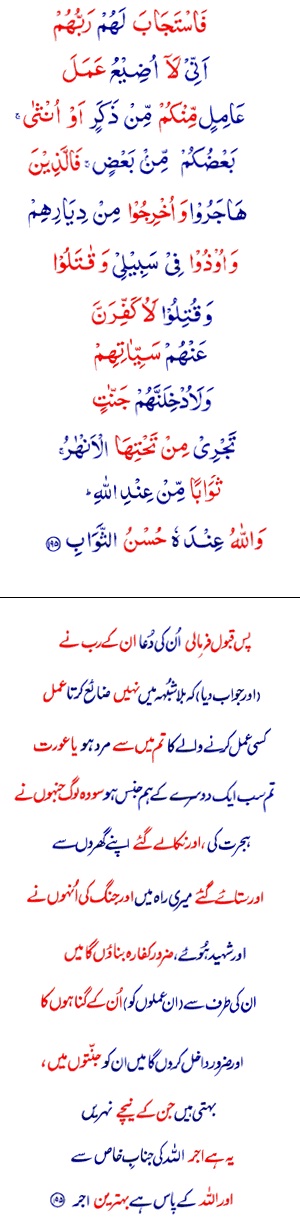 فَاسْتَجَابَ لَهُمْ رَبُّهُمْ
اَنِّیْ لَاۤ اُضِیْعُ عَمَلَ
عَامِلٍ مِّنْكُمْ مِّنْ ذَكَرٍ اَوْ اُنْثٰی ۚ
بَعْضُكُمْ مِّنْ بَعْضٍ ۚ فَالَّذِیْنَ
هَاجَرُوْا وَ اُخْرِجُوْا مِنْ دِیَارِهِمْ
وَ اُوْذُوْا فِیْ سَبِیْلِیْ وَ قٰتَلُوْا
وَ قُتِلُوْا لَاُكَفِّرَنَّ
عَنْهُمْ سَیِّاٰتِهِمْ
وَلَاُدْخِلَنَّهُمْ جَنّٰتٍ
تَجْرِیْ مِنْ تَحْتِهَا الْاَنْهٰرُ ۚ
ثَوَابًا مِّنْ عِنْدِ اللهِ ؕ
وَاللهُ عِنْدَهٗ حُسْنُ الثَّوَابِ ۱۹۵
پس قبول فرمالی اُن کی دُعا ان کے رب نے
(اور جواب دیا) کہ بلا شبُہہ میں نہیں ضائع کرتا عمل
کسی عمل کرنے والے کا تم میں سے مرد ہو یا عورت
تم سب ایک دوسرے کے ہم جنس ہو سو وہ لوگ جنہوں نے
ہجرت کی، اور نکالے گئے اپنے گھروں سے
اور ستائے گئے میری راہ میں اور جنگ کی اُنہوں نے
اور شہید ہُوئے، ضرور کفارہ بناؤں گا میں
ان کی طرف سے (ان عملوں کو) اُن کے گناہوں کا
اور ضرور داخل کروں گا میں ان کو جنّتوں میں،
بہتی ہیں جن کے نیچے نہریں
یہ ہے اجر اللہ کی جنابِ خاص سے
اور اللہ کے پاس ہے بہترین اجر ۱۹۵